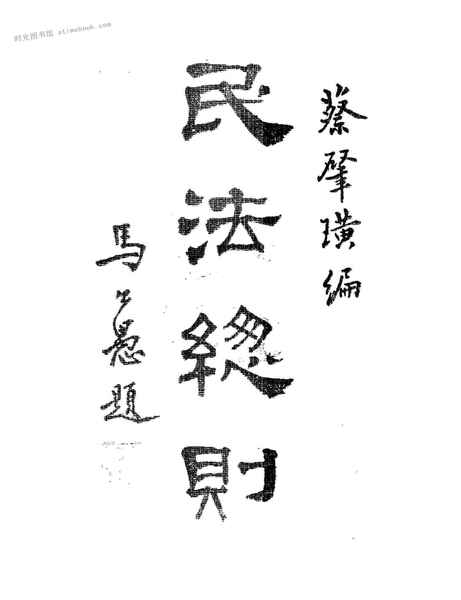 时光图书馆 stimebook.com
蔡肇璜編
民法總則
馬公愚題